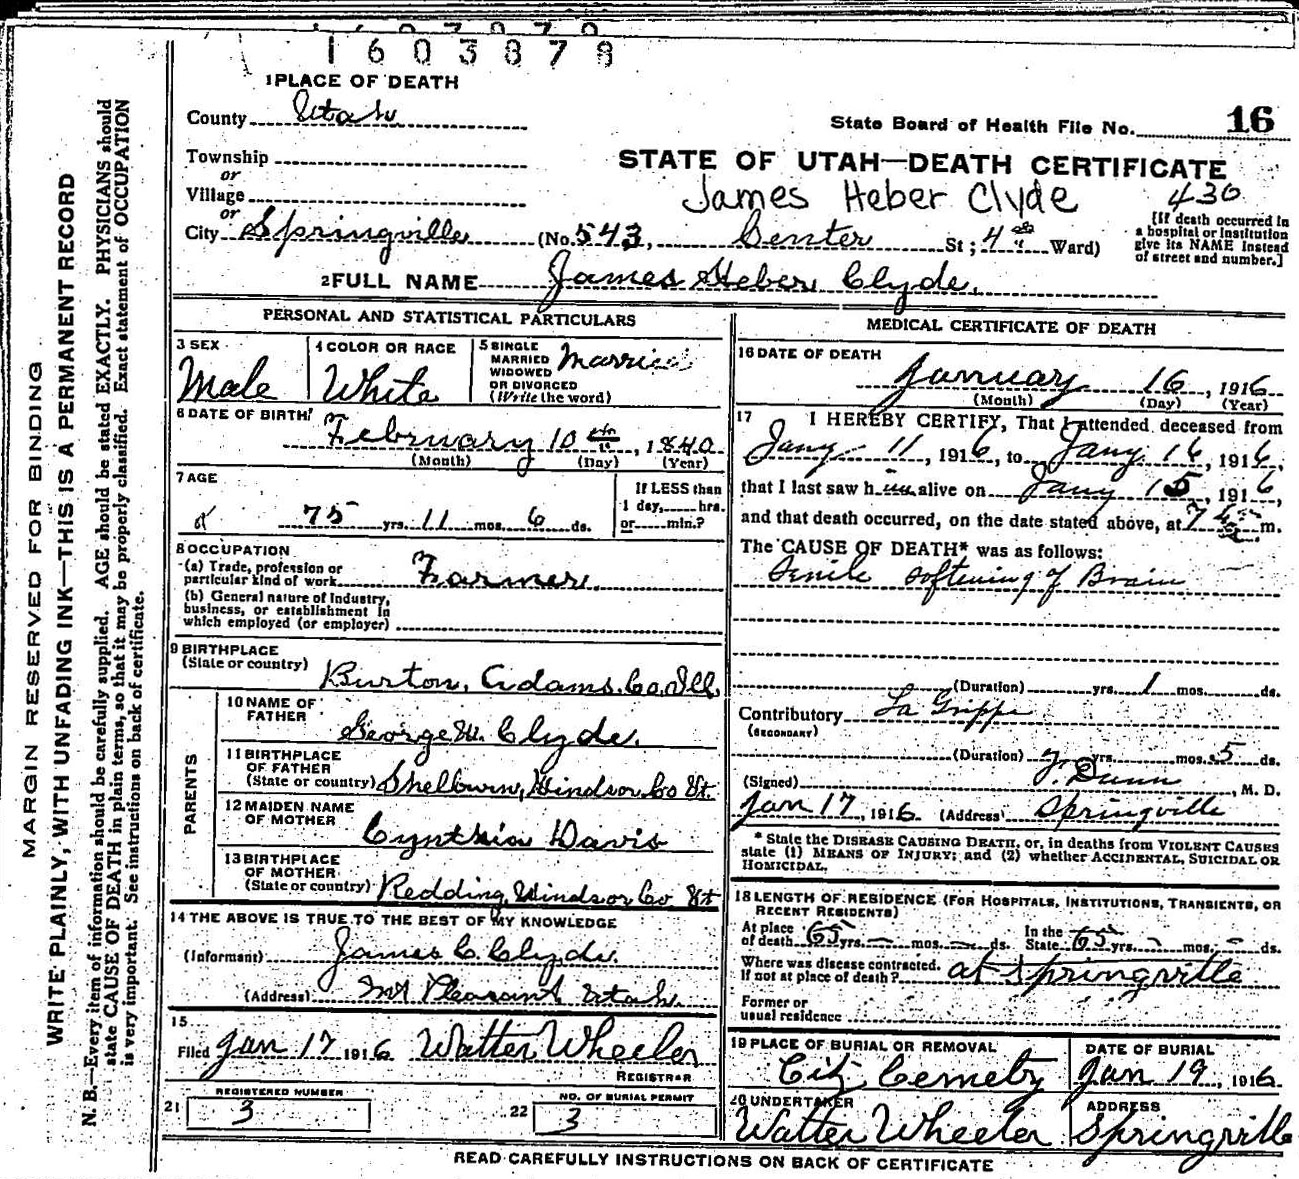 1603878
1 PLACE OF DEATH
County Utah
State Board of Health File No. 16
Township
or
STATE OF UTAH—DEATH CERTIFICATE
Village
or
James Heber Clyde 430
City Springville (No. 543, Center St; 4th Ward)
[If death occurred in
a hospital or institution
give its NAME instead
of street and number.]
2 FULL NAME James Heber Clyde.
PERSONAL AND STATISTICAL PARTICULARS
3 SEX Male
4 COLOR OR RACE White
5 SINGLE
MARRIED
WIDOWED
OR DIVORCED
(Write the word) Married
6 DATE OF BIRTH
February 10th, 1840
(Month) (Day) (Year)
7 AGE
75 yrs. 11 mos. 6 ds.
If LESS than
1 day, hrs.
or min.?
8 OCCUPATION
(a) Trade, profession or
particular kind of work Farmer.
(b) General nature of industry,
business, or establishment in
which employed (or employer)
9 BIRTHPLACE
(State or country) Burton, Adams. Co. Ill.
PARENTS
10 NAME OF
FATHER George W. Clyde.
11 BIRTHPLACE
OF FATHER
(State or country) Shelburn, Windsor Co Vt.
12 MAIDEN NAME
OF MOTHER Cynthia Davis
13 BIRTHPLACE
OF MOTHER
(State or country) Redding, Windsor Co Vt
14 THE ABOVE IS TRUE TO THE BEST OF MY KNOWLEDGE
(Informant) James C. Clyde.
(Address) Mt Pleasant Utah.
15
Filed Jan 17 1916 Walter Wheeler
REGISTRAR
21 REGISTERED NUMBER 3
22 NO. OF BURIAL PERMIT 3
MEDICAL CERTIFICATE OF DEATH
16 DATE OF DEATH
January 16, 1916
(Month) (Day) (Year)
17 I HEREBY CERTIFY, That I attended deceased from
Jany 11, 1916, to Jany 16, 1916,
that I last saw him alive on Jany 15, 1916,
and that death occurred, on the date stated above, at 7 m.
The CAUSE OF DEATH* was as follows:
Senile softening of Brain
(Duration) yrs. 1 mos. ds.
Contributory La Grippe
(SECONDARY)
(Duration) yrs. mos. 5 ds.
(Signed) F. Dunn, M. D.
Jan 17, 1916 (Address) Springville
* State the DISEASE CAUSING DEATH, or, in deaths from VIOLENT CAUSES
state (1) MEANS OF INJURY; and (2) whether ACCIDENTAL, SUICIDAL OR
HOMICIDAL.
18 LENGTH OF RESIDENCE (FOR HOSPITALS, INSTITUTIONS, TRANSIENTS, OR
RECENT RESIDENTS)
At place
of death 65 yrs. — mos. — ds.
In the
State 65 yrs. - mos. - ds.
Where was disease contracted,
if not at place of death? at Springville
Former or
usual residence
19 PLACE OF BURIAL OR REMOVAL
City Cemetry
DATE OF BURIAL
Jan 19, 1916
20 UNDERTAKER
Walter Wheeler
ADDRESS
Springville
READ CAREFULLY INSTRUCTIONS ON BACK OF CERTIFICATE
MARGIN RESERVED FOR BINDING
WRITE PLAINLY, WITH UNFADING INK—THIS IS A PERMANENT RECORD
N. B.—Every item of information should be carefully supplied. AGE should be stated EXACTLY. PHYSICIANS should
state CAUSE OF DEATH in plain terms, so that it may be properly classified. Exact statement of OCCUPATION
is very important. See instructions on back of certificate.